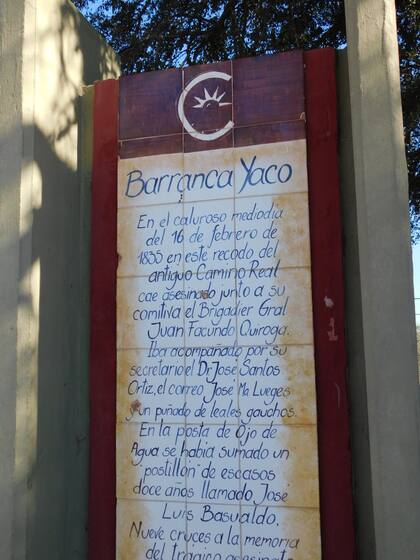 Barranca Yaco
En el caluroso mediodía
del 16 de febrero de
1835 en este recodo del
antiguo Camino Real
cae asesinado junto a su
comitiva el Brigadier Gral
Juan Facundo Quiroga.
Iba acompañado por su
secretario el Dr José Santos
Ortiz, el correo José Ma. Lueges
y un puñado de leales gauchos.
En la posta de Ojo de
Agua se había sumado un
postillón de escasos
doce años llamado, José
Luis Basualdo.
Nueve cruces a la memoria
del trágico asesinato